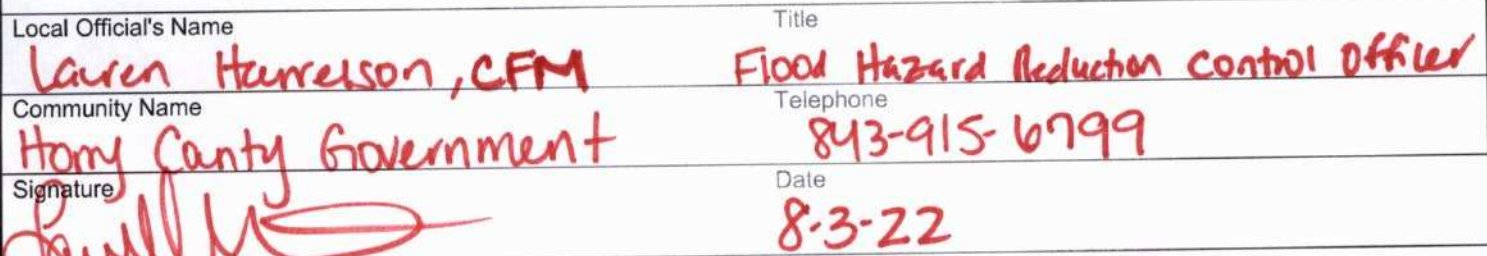 Local Official's Name Title
Lauren Harrelson, CFM Flood Hazard Reduction Control Officer
Community Name Telephone
Horry County Government 843-915-6799
Signature Date
8-3-22